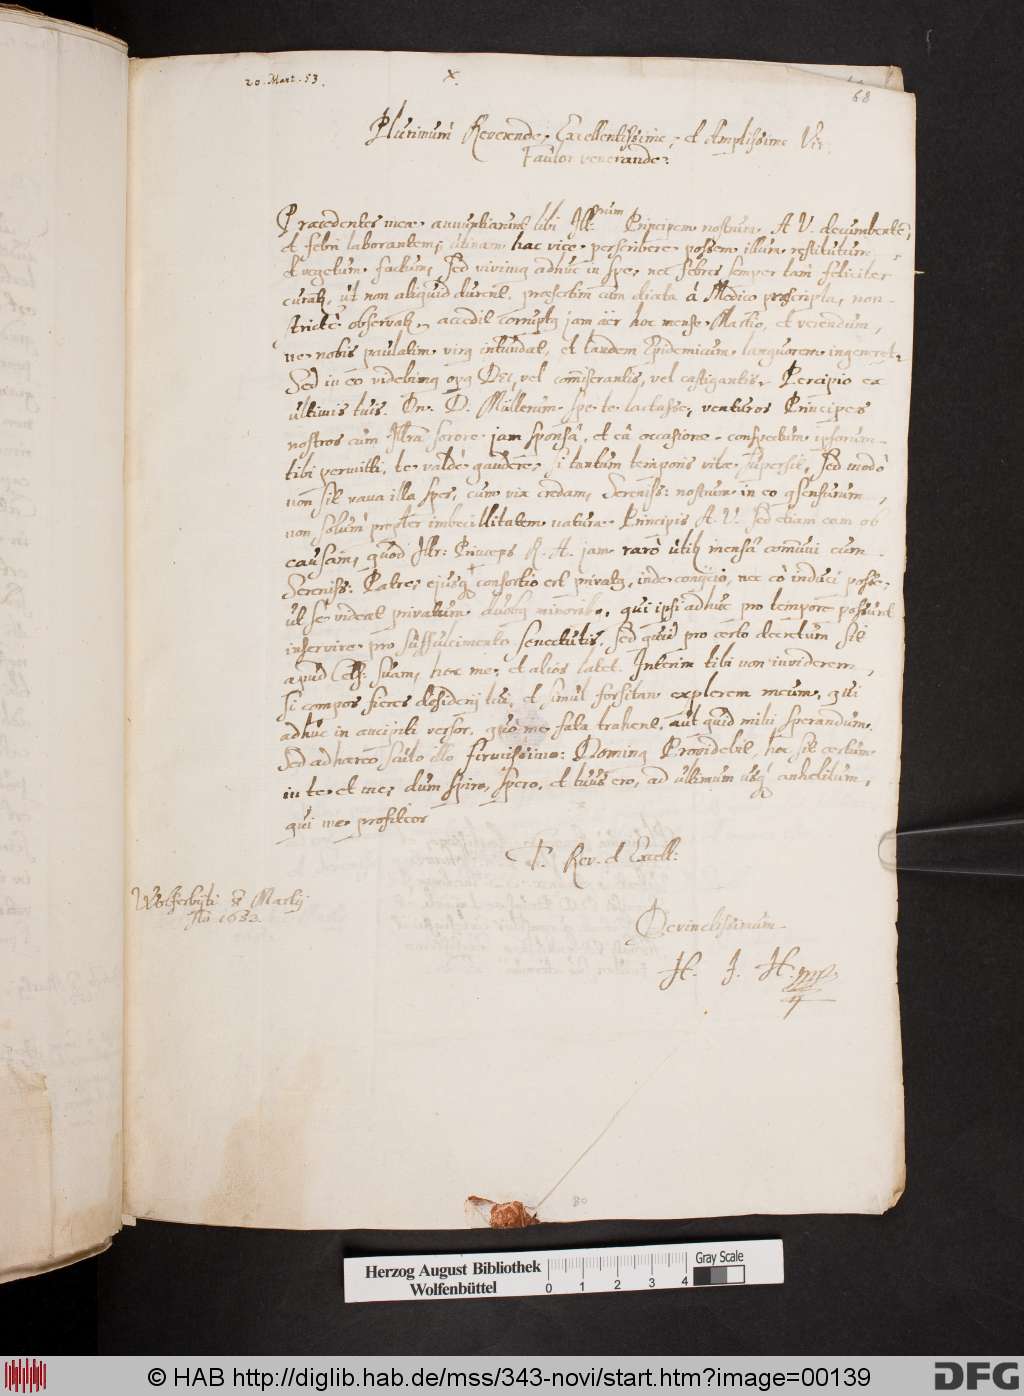 20. Mart. 53.
x.
68
Plurimùm Reverende, Excellentissime, et Amplissime Vir,
Fautor venerande.
Præcedentes meæ annuntiarunt tibi Ill.mum Principem nostrum A. V. decumbentē,
et febri laborantem, utinam hac vice perscribere possem illum restitutum,
et vegetum factum, Sed vivimq adhuc in spe, nec febres semper tam feliciter
curatq, ut non aliquid durent, præsertim cùm diæta à Medico præscripta, non
strictè observatq, accedit corruptq jam äer hoc mense Martio, et verendum,
ne nobis paulatim virq intundat, et tandem Epidemicum languorem ingeneret.
Sed in eo videbimq opq Dei, vel comiserantis, vel castigantis. Percipio ex
ultimis tuis Dn. D. Müllerum spe te lactasse, venturos Principes
nostros cum Illrâ sorore jam sponsâ, et eâ occasione conspectum ipsorum
tibi permitti, te valdè gaudere, si tantum temporis vitæ supersit, Sed modò
non sit vana illa spes, cum vix credam, Sereniss: nostrum in eo qsensurum,
non solùm propter imbecillitatem naturæ Principis A. V. Sed etiam eam ob
causam, quod Illr: Princeps R. A. jam rarò utitq mensâ comuni cum
Sereniss: Patre, ejusq consortio est privatq, inde conijcio, nec eò induci posse,
ut se videat privatum duobq minoribq, qui ipsi adhuc pro tempore possunt
inservire pro suffulcimento senectutis, Sed quid pro certo decretum sit
apud Cels: Suam, hoc me, et alios latet. Interim tibi non inviderem,
si compos fieres desiderij tui, et simul forsitan explerem meum, qui
adhuc in ancipiti versor, quò me fata trahent, aut quid mihi sperandum.
Sed adhæreo scuto illo firmissimo: Dominq Providebit, hoc sit certum
in te et me, dum spiro, spero, et tuus ero, ad ultimum usq anhelitum,
qui me profiteor
T. Rev. et Excell:
Wolferbyti 8 Martij
Aõ 1653.
Devinctissimum
H. J. H. mp
80
Herzog August Bibliothek
Wolfenbüttel
0 1 2 3 4
Gray Scale
© HAB http://diglib.hab.de/mss/343-novi/start.htm?image=00139
DFG